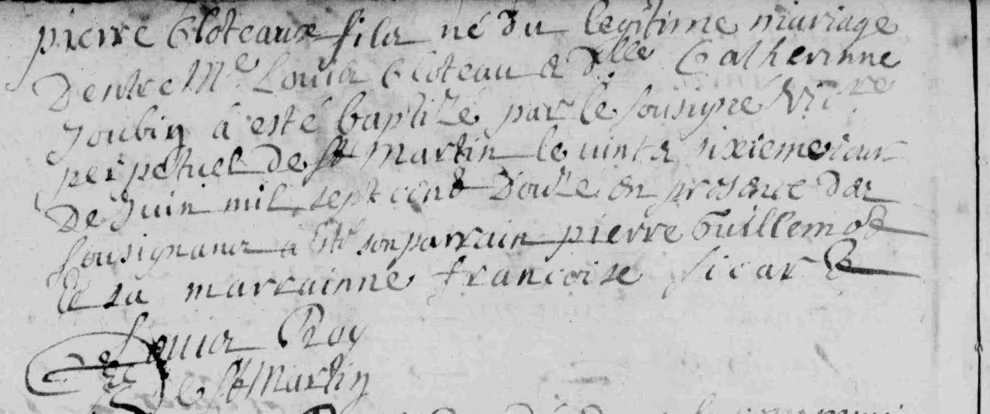 pierre Gloteaux fils né du legitime mariage
Dentre Me Louis Gloteau & dlle Catherinne
Joubin á esté baptizé par le sousigné Vicre
perpetuel de St Martin le vint & sixieme iour
De Juin mil sept cent douze en presence des
sousignans a été son parrain pierre Guillemot
Et sa marrainne francoise sicard
Louis Roy
de St Martin